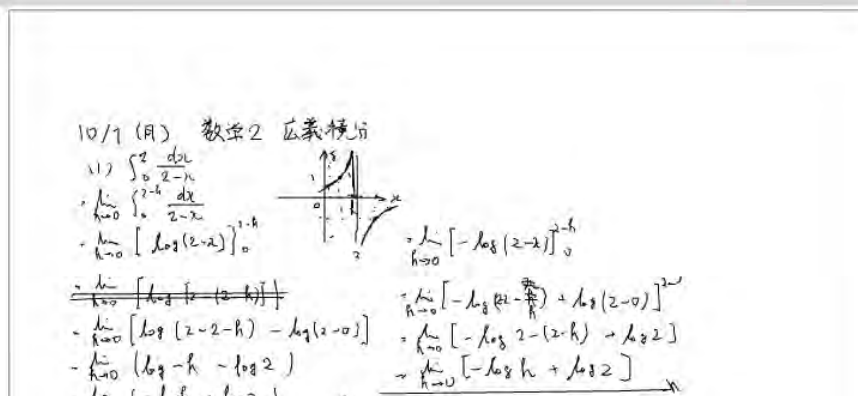 10/1 (月) 数学2 広義積分
(1) ∫₀² dx/(2-x)
= lim_{h→0} ∫₀^{2-h} dx/(2-x)
= lim_{h→0} [log(2-x)]₀^{2-h}
= lim_{h→0} [log{2-(2-h)}]
= lim_{h→0} [log(2-2-h) - log(2-0)]
= lim_{h→0} (log -h - log 2)
1
0
2
x
= lim_{h→0} [-log(2-x)]₀^{2-h}
= lim_{h→0} [-log(2- ) + log(2-0)]
= lim_{h→0} [-log 2-(2-h) + log 2]
= lim_{h→0} [-log h + log 2]